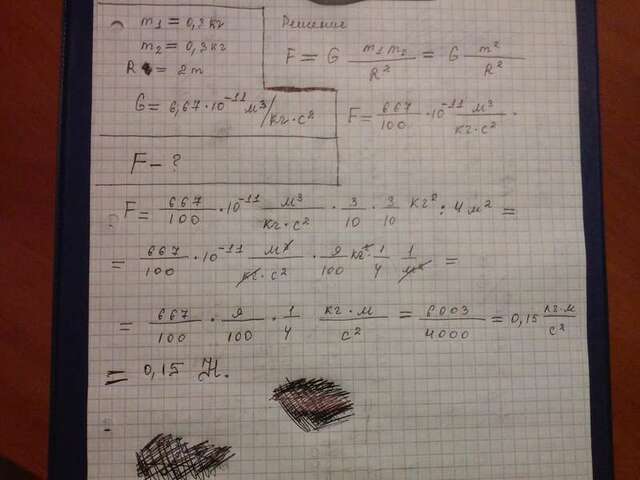 m₁ = 0,3 кг
m₂ = 0,3 кг
R = 2 m
G = 6,67·10⁻¹¹ м³/кг·с²
F – ?
Решение
F = G m₁m₂/R² = G m²/R²
F = 667/100 ·10⁻¹¹ м³/кг·с² ·
F = 667/100 ·10⁻¹¹ м³/кг·с² · 3/10 · 3/10 кг² : 4 м² =
= 667/100 ·10⁻¹¹ м³/кг·с² · 9 кг²/100 · 1/4 1/м² =
= 667/100 · 9/100 · 1/4 кг·м/с² = 6003/4000 = 0,15 кг·м/с²
= 0,15 Н.